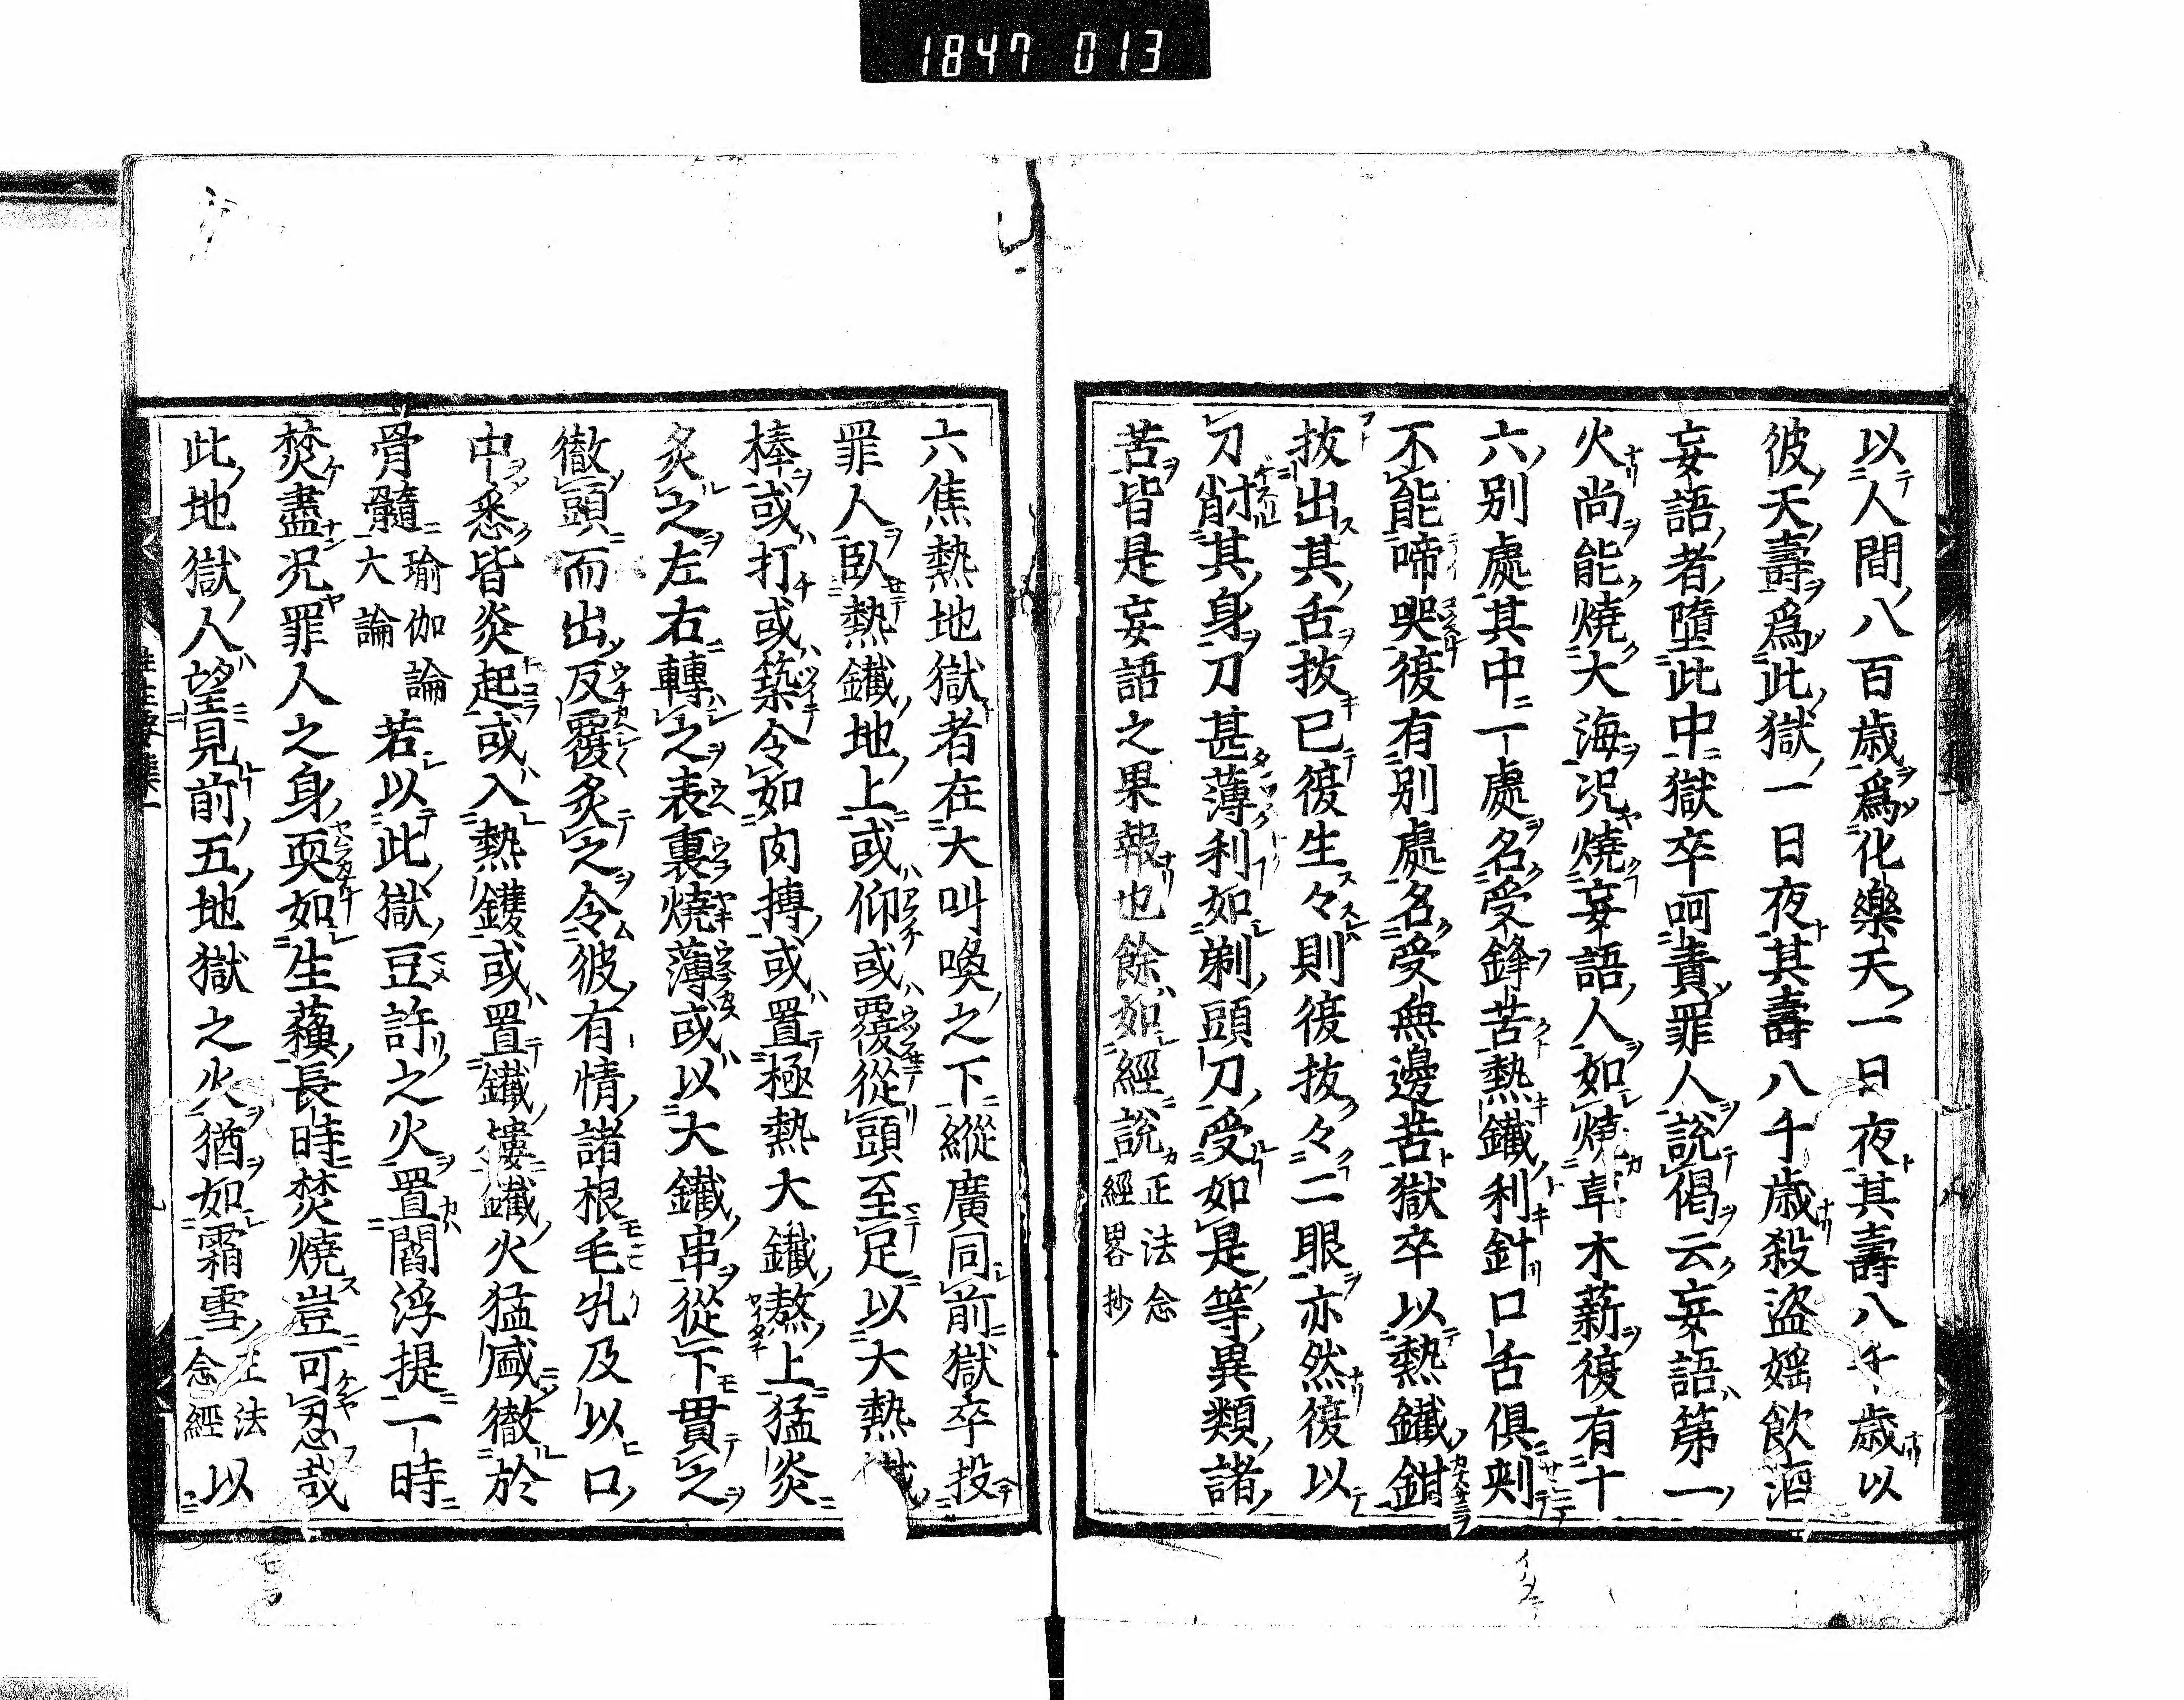 1847 013
以人間八百歳爲化樂天一日夜其壽八千歳以
彼天壽爲此獄一日夜其壽八千歳殺盜婬飮酒
妄語者墮此中獄卒呵責罪人說偈云妄語第一
火尚能燒大海况燒妄語人如燒草木薪復有十
六別處其中一處名受鋒苦熱鐵利針口舌俱刺
不能啼哭復有別處名受無邊苦獄卒以熱鐵鉗
拔出其舌拔已復生々則復拔々二眼亦然復以
刀削其身刀甚薄利如剃頭刀受如是等異類諸
苦皆是妄語之果報也餘如經說正法念經畧抄
六焦熱地獄者在大叫喚之下縱廣同前獄卒投
罪人臥熱鐵地上或仰或覆從頭至足以大熱鐵
棒或打或築令如肉摶或置極熱大鐵熬上猛炎
炙之左右轉之表裏燒薄或以大鐵串從下貫之
徹頭而出反覆炙之令彼有情諸根毛孔及以口
中悉皆炎起或入熱鑊或置鐵樓鐵火猛盛徹於
骨髓瑜伽論大論若以此獄豆許之火置閻浮提一時
焚盡况罪人之身耎如生蘓長時焚燒豈可忍哉
此地獄人望見前五地獄之火猶如霜雪正法念經以